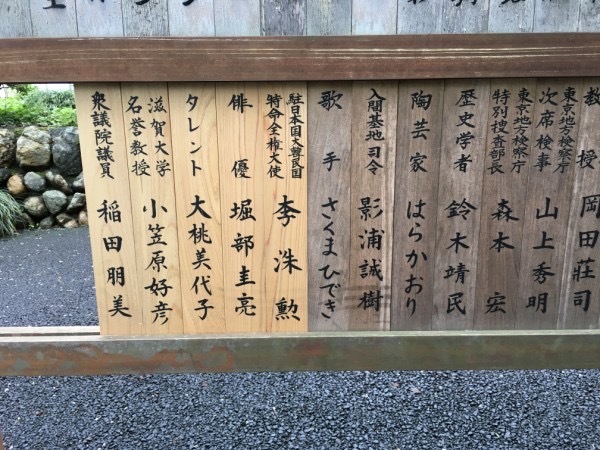 教授 岡田莊司
東京地方検察庁
次席検事 山上秀明
東京地方検察庁
特別捜査部長 森本宏
歴史学者 鈴木靖民
陶芸家 はらかおり
入間基地司令 影浦誠樹
歌手 さくまひでき
駐日本国大韓民国
特命全権大使 李洙勲
俳優 堀部圭亮
タレント 大桃美代子
滋賀大学
名誉教授 小笠原好彦
衆議院議員 稲田朋美